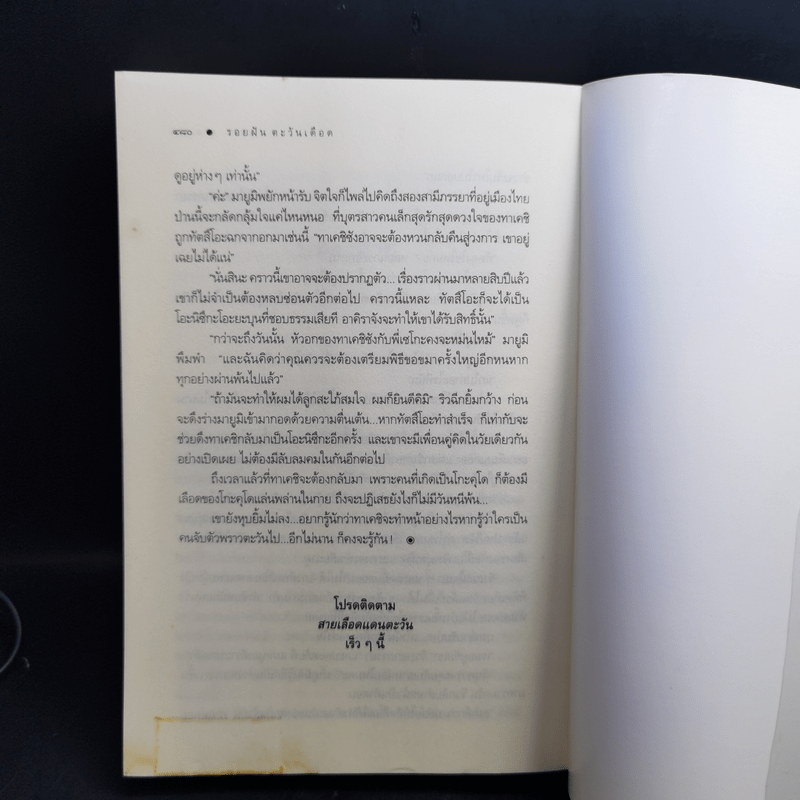 ๔๗๐ ● รอยฝัน ตะวันเดือด
ดูอยู่ห่างๆ เท่านั้น”
“ค่ะ” มายูมิพยักหน้ารับ จิตใจก็ไพล่ไปคิดถึงสองสามีภรรยาที่อยู่เมืองไทย
ป่านนี้จะกลัดกลุ้มใจแค่ไหนหนอ ที่บุตรสาวคนเล็กสุดรักสุดดวงใจของทาเคชิ
ถูกทัตสึโอะฉกจากอกมาเช่นนี้ “ทาเคชิซังอาจจะต้องหวนกลับคืนสู่วงการ เขาอยู่
เฉยไม่ได้แน่”
“นั่นสินะ คราวนี้เขาอาจจะต้องปรากฏตัว... เรื่องราวผ่านมาหลายสิบปีแล้ว
เขาก็ไม่จำเป็นต้องหลบซ่อนตัวอีกต่อไป คราวนี้แหละ ทัตสึโอะก็จะได้เป็น
โอะนิซึกะโอะยะบุนที่ชอบธรรมเสียที อาคิราจังจะทำให้เขาได้รับสิทธิ์นั้น”
“กว่าจะถึงวันนั้น หัวอกของทาเคชิซังกับพี่เซโกะคงจะหม่นไหม้” มายูมิ
พึมพำ “และฉันคิดว่าคุณควรจะต้องเตรียมพิธีขอขมาครั้งใหญ่อีกหนหาก
ทุกอย่างผ่านพ้นไปแล้ว”
“ถ้ามันจะทำให้ผมได้ลูกสะใภ้สมใจ ผมก็ยินดีคิมิ” ริวฉีกยิ้มกว้าง ก่อน
จะดึงร่างมายูมิเข้ามากอดด้วยความตื่นเต้น...หากทัตสึโอะทำสำเร็จ ก็เท่ากับจะ
ช่วยดึงทาเคชิกลับมาเป็นโอะนิซึกะอีกครั้ง และเขาจะมีเพื่อนคู่คิดในวัยเดียวกัน
อย่างเปิดเผย ไม่ต้องมีลับลมคมในกันอีกต่อไป
ถึงเวลาแล้วที่ทาเคชิจะต้องกลับมา เพราะคนที่เกิดเป็นโกะคุโด ก็ต้องมี
เลือดของโกะคุโดแล่นพล่านในกาย ถึงจะปฏิเสธยังไงก็ไม่มีวันหนีพ้น...
เขายังหุบยิ้มไม่ลง...อยากรู้นักว่าทาเคชิจะทำหน้าอย่างไรหากรู้ว่าใครเป็น
คนจับตัวพราวตะวันไป...อีกไม่นาน ก็คงจะรู้กัน! ◉
โปรดติดตาม
สายเลือดแดนตะวัน
เร็ว ๆ นี้